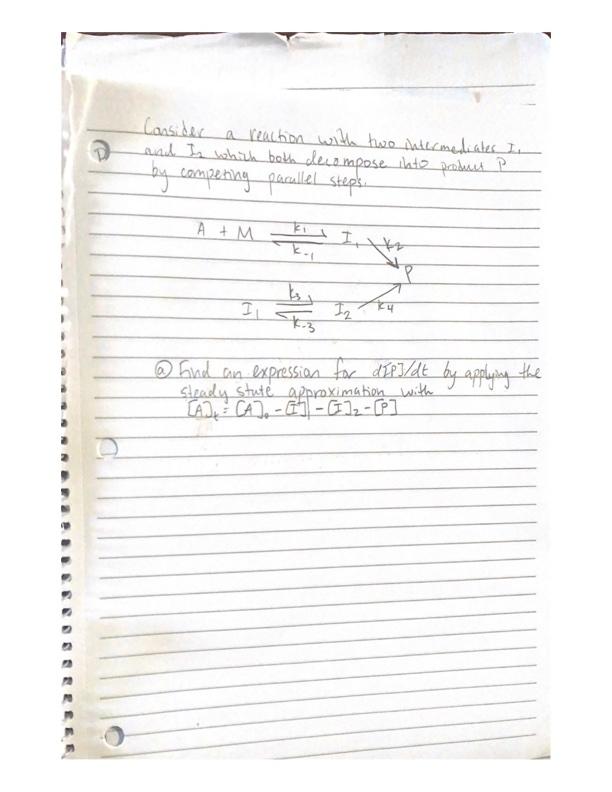 Consider a reaction with two intermediates I₁
and I₂ which both decompose into product P
by competing parallel steps.
A + M k₁ I₁ k₂
k₋₁
P
I₁ k₃ I₂ k₄
k₋₃
ⓐ Find an expression for d[P]/dt by applying the
steady state approximation with
[A]ₜ = [A]₀ - [I]₁ - [I]₂ - [P]